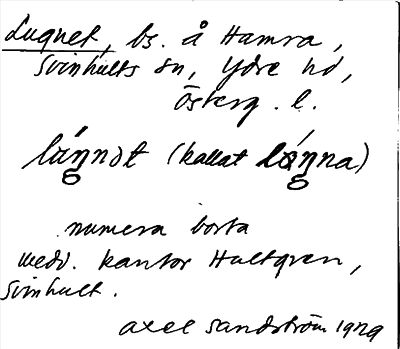 Lugnet, bs. å Hamra,
Svinhults sn, Ydre hd,
Österg. l.
(kallat
numera borta
medd. kantor Hultgren,
Svinhult.
Axel Sandström 1929